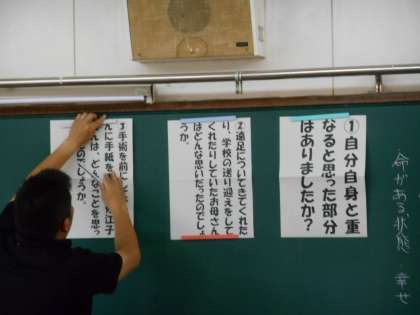 命がある状態　幸せ
①自分自身と重
なると思った部分
はありましたか？
②遠足についてきてくれた
り、学校の送り迎えをして
くれたりしていたお母さん
はどんな思いだったのでしょ
うか。
③手術を前にし
んに手紙を 江子
んは、どんなことを思っ
のでしょうか。